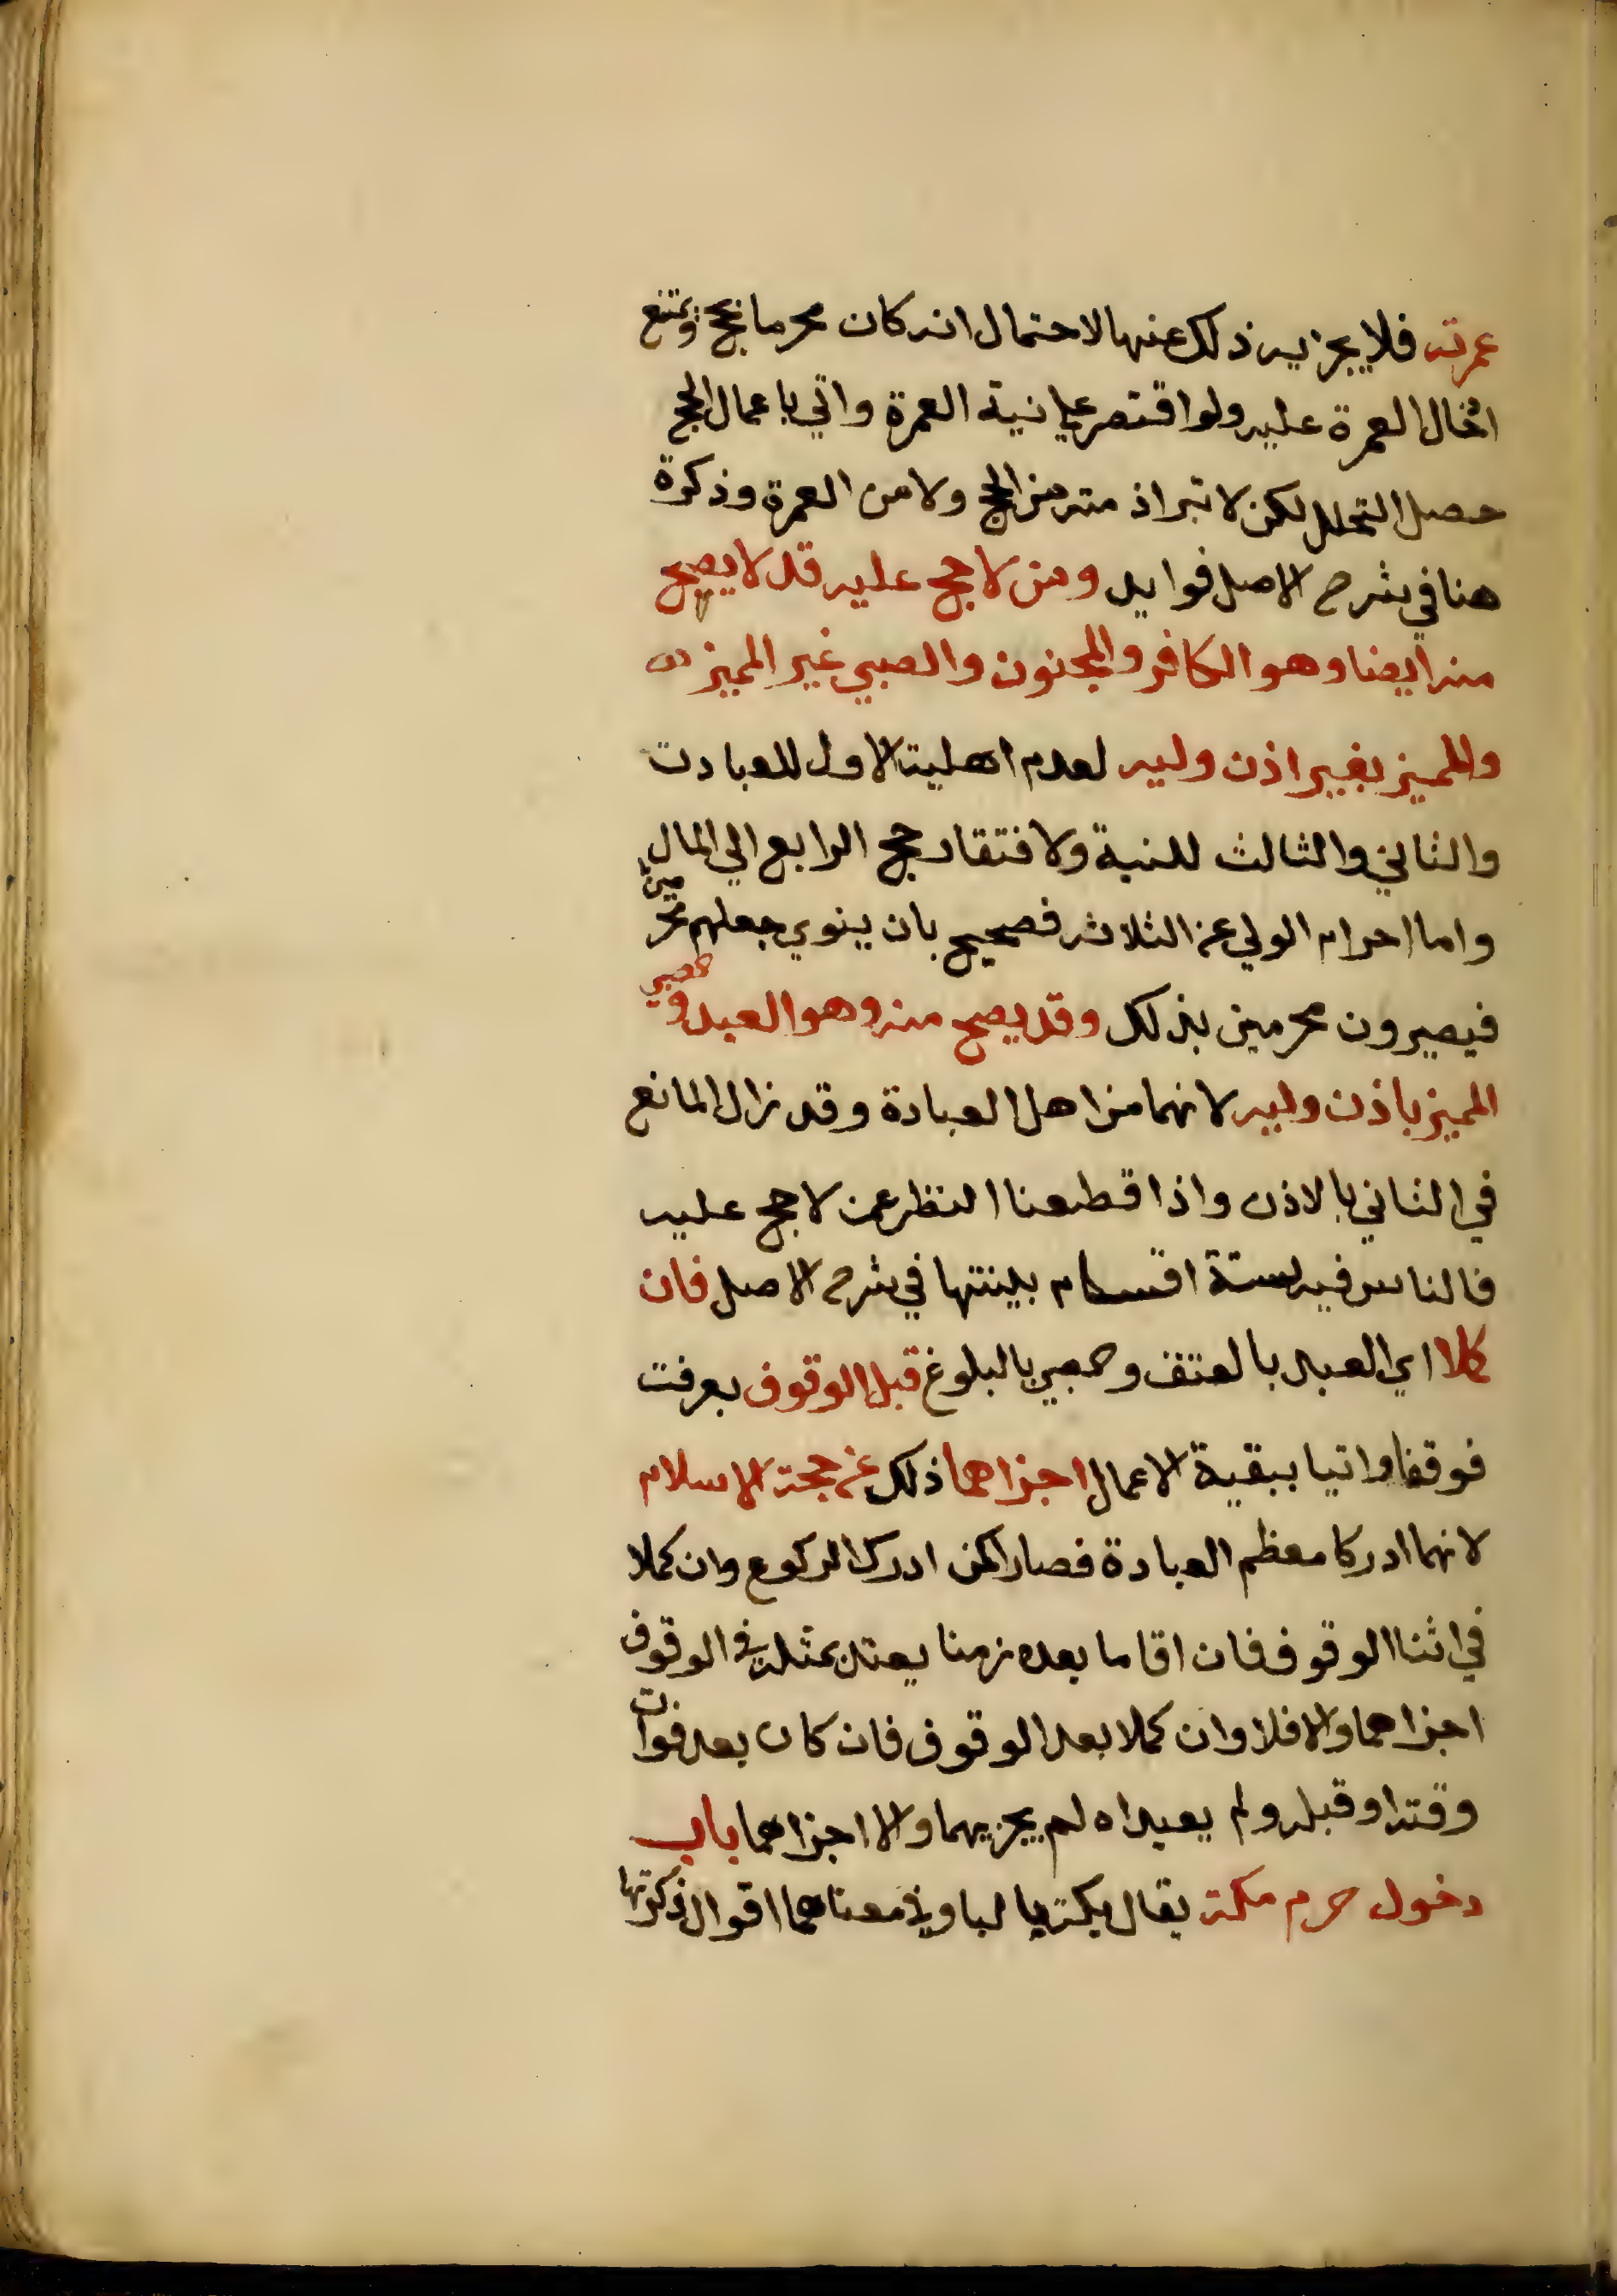 عمرته فلا يجزيه ذلك عنها لاحتمال انه كان محرما بحج ويمتنع
ادخال العمرة عليه ولو اقتصر علي نية العمرة واتي باعمال الحج
حصل التحلل لكن لا تبراذ مته من الحج ولا من العمرة وذكرة
هنا في شرح الاصل فوايد ومن لا حج عليه قد لا يصح
منه ايضا وهو الكافر والمجنون والصبي غير المميز
والمميز بغير اذن وليه لعدم اهلية الاول للعبادت
والثاني والثالث للنية ولافتقار حج الرابع الي المال
واما احرام الولي عن الثلاثه فصحيح بان ينوي جعلهم محرمين
فيصيرون محرمين بذلك وقد يصح منه وهو العبد وصبي
المميز باذن وليه لانهما من اهل العبادة وقد زال المانع
في الثاني بالاذن واذا قطعنا النظر عمن لا حج عليه
فالناس فيه ستة اقسام بينتها في شرح الاصل فان
كملا اي العبد بالعتق وصبي بالبلوغ قبل الوقوف بعرفت
فوقفا واتيا ببقية الاعمال اجزاهما ذلك عن حجة الاسلام
لانهما ادركا معظم العبادة فصارا كمن ادرك الركوع وان كملا
في اثنا الوقوف فان اقاما بعده زمنا يعتد بمثله في الوقوف
اجزاهما والا فلا وان كملا بعد الوقوف فان كان بعد فوات
وقته او قبله ولم يعيداه لم يجزيهما والا اجزاهما باب
دخول حرم مكة يقال بكة بالبا وفي معناهما اقوال ذكرتها